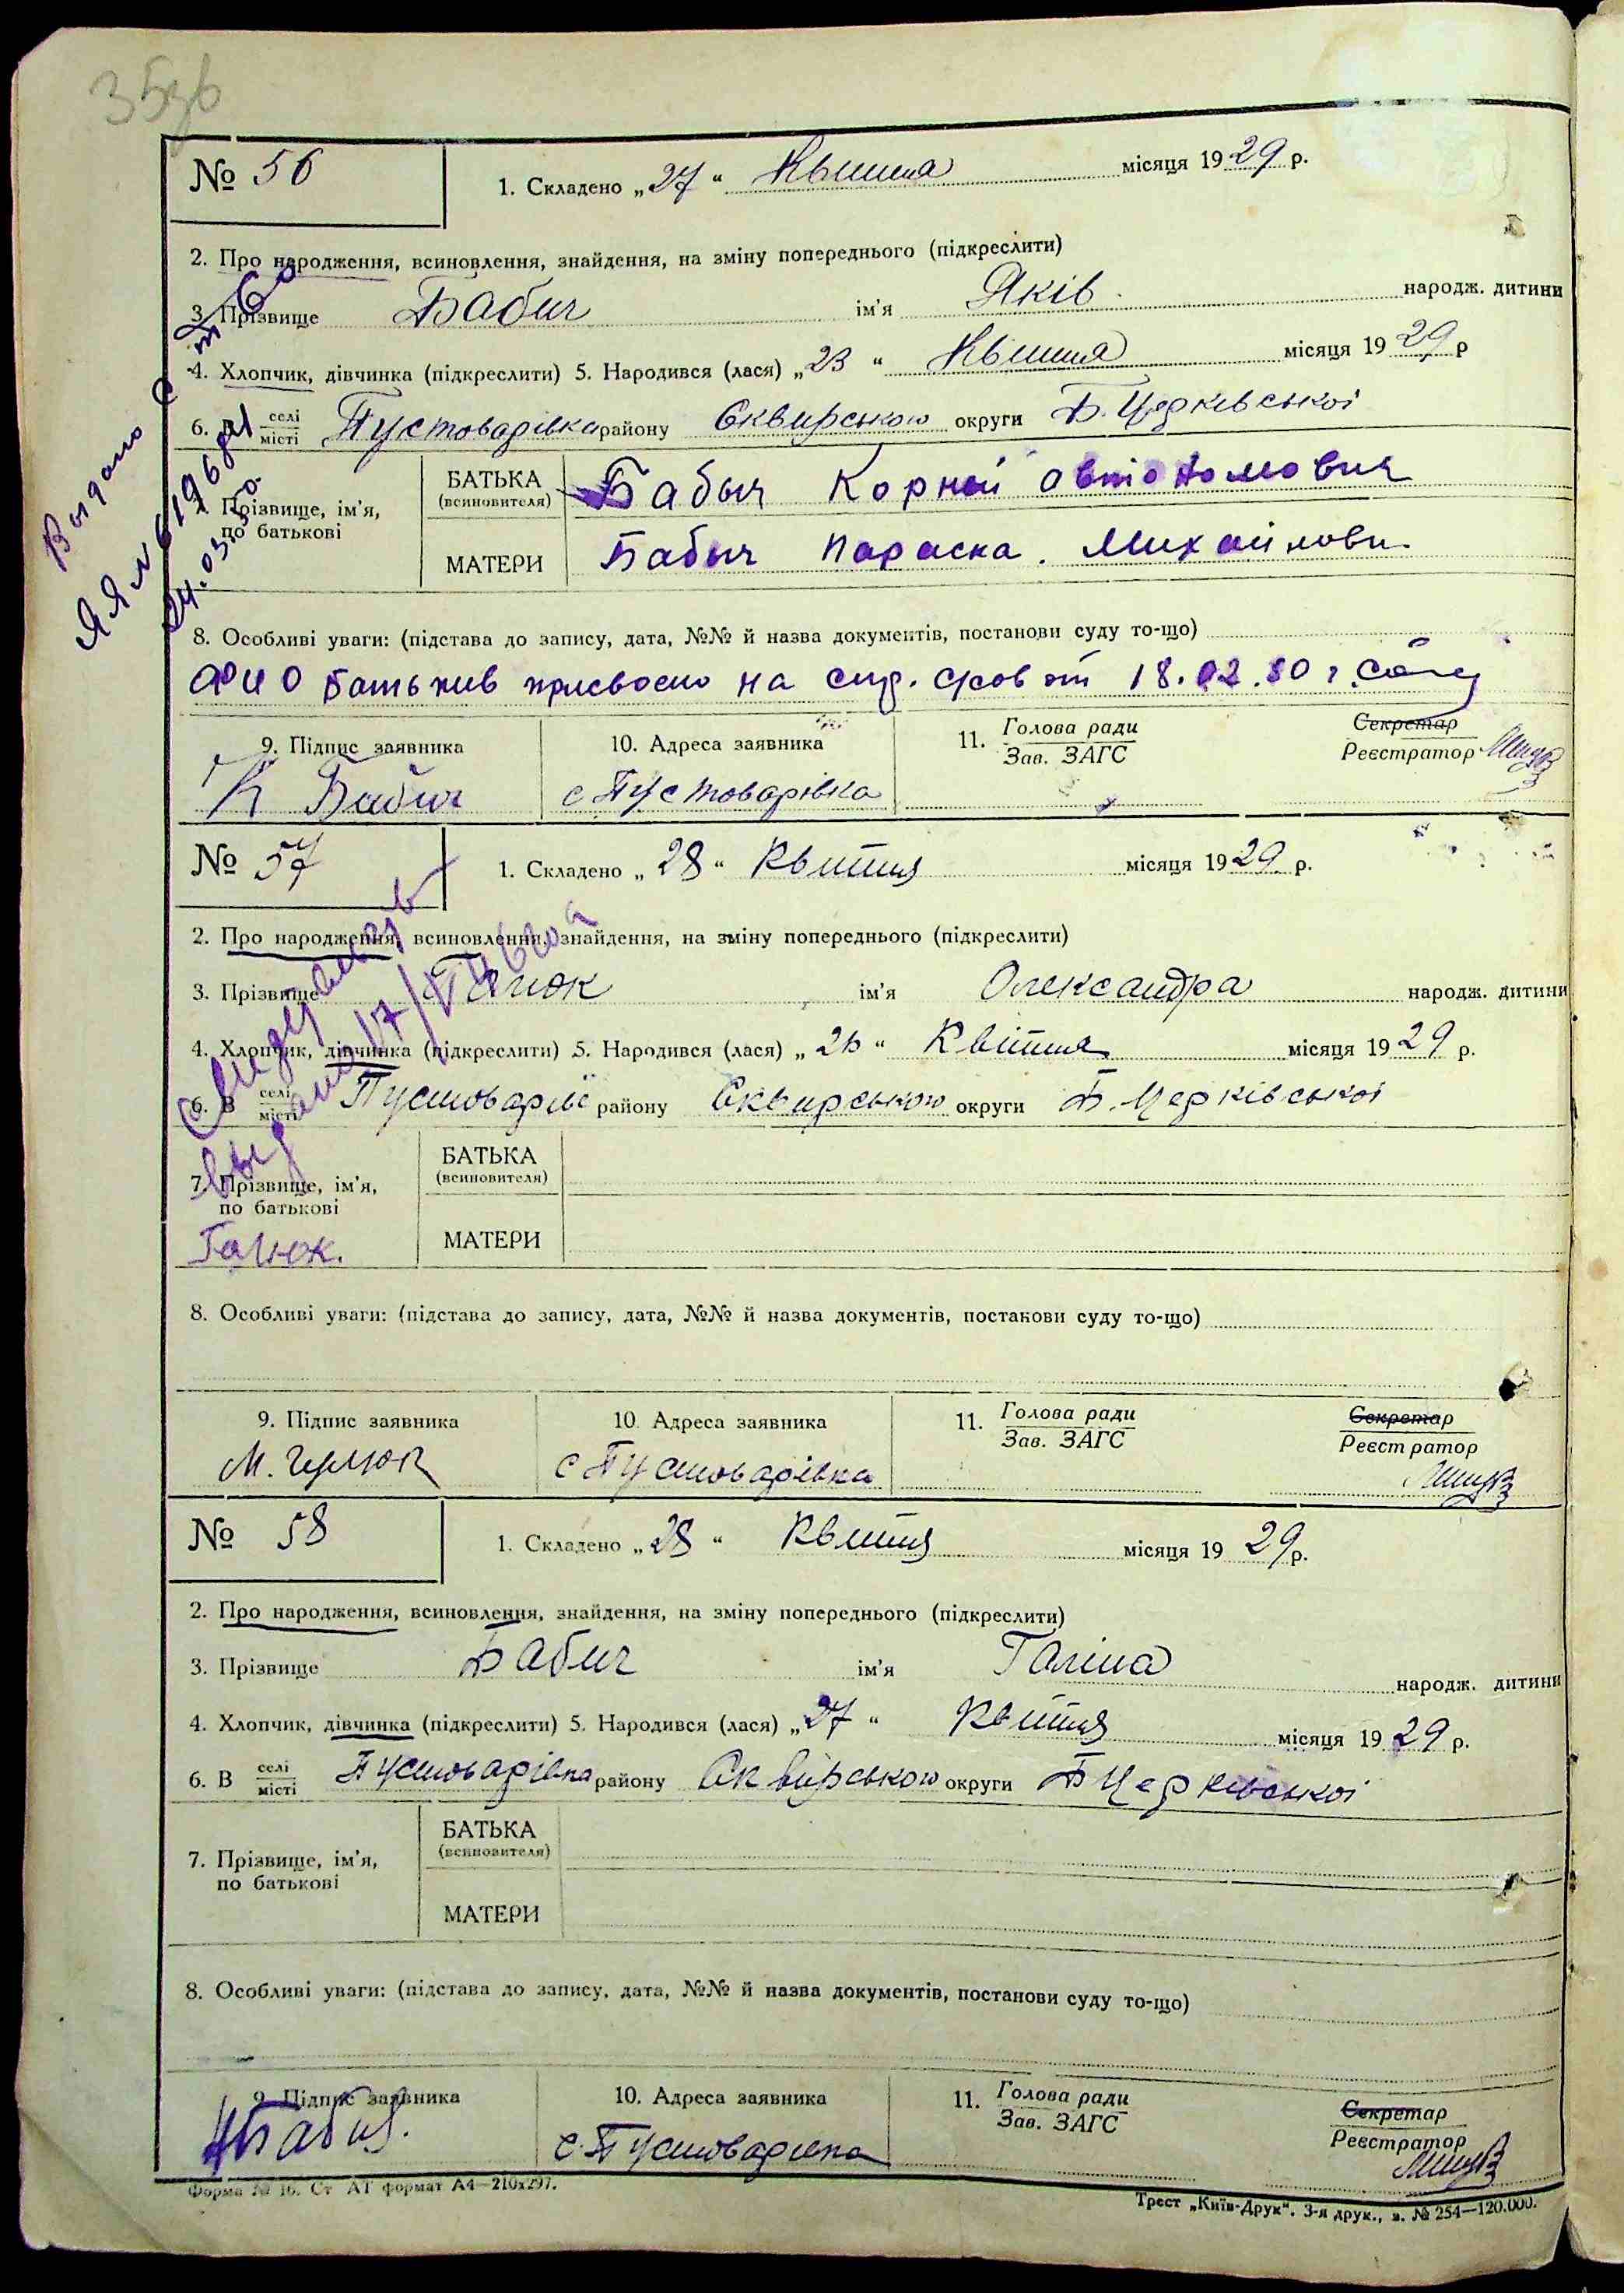 35зв
№ 56
1. Складено „27“ Квітня місяця 1929 р.
2. Про народження, всиновлення, знайдення, на зміну попереднього (підкреслити)
3. Прізвище Бабич ім'я Яків народж. дитини
4. Хлопчик, дівчинка (підкреслити) 5. Народився (лася) „23“ Квітня місяця 1929 р
6. В селі місті Пустоварівка району Сквирського округи Б. Церківської
7. Прізвище, ім'я, по батькові
БАТЬКА (всиновителя) Бабыч Корней Автономович
МАТЕРИ Бабыч Параска Михайловн.
Выдано с-во
24.03.80
8. Особливі уваги: (підстава до запису, дата, №№ й назва документів, постанови суду то-що)
ФИО батьків присвоено на от 18.02.80 г.
9. Підпис заявника
10. Адреса заявника
11. Голова ради Зав. ЗАГС
Секретар Реєстратор
К Бабич
с Пустоварівка
№ 57
1. Складено „28“ Квітня місяця 1929 р.
2. Про народження, всиновлення, знайдення, на зміну попереднього (підкреслити)
3. Прізвище ім'я Олександра народж. дитини
4. Хлопчик, дівчинка (підкреслити) 5. Народився (лася) „26“ Квітня місяця 1929 р.
6. В селі місті Пустоварів району Сквирського округи Б. Церківської
7. Прізвище, ім'я, по батькові
БАТЬКА (всиновителя)
МАТЕРИ
8. Особливі уваги: (підстава до запису, дата, №№ й назва документів, постанови суду то-що)
9. Підпис заявника
10. Адреса заявника
11. Голова ради Зав. ЗАГС
Секретар Реєстратор
М.
с Пустоварівка
№ 58
1. Складено „28“ Квітня місяця 1929 р.
2. Про народження, всиновлення, знайдення, на зміну попереднього (підкреслити)
3. Прізвище Бабич ім'я Галіна народж. дитини
4. Хлопчик, дівчинка (підкреслити) 5. Народився (лася) „27“ Квітня місяця 1929 р.
6. В селі місті Пустоварівка району Сквирського округи Б Церківської
7. Прізвище, ім'я, по батькові
БАТЬКА (всиновителя)
МАТЕРИ
8. Особливі уваги: (підстава до запису, дата, №№ й назва документів, постанови суду то-що)
9. Підпис заявника
10. Адреса заявника
11. Голова ради Зав. ЗАГС
Секретар Реєстратор
с. Пустоварівка
Форма № 16. Ст АТ формат А4—210x297.
Трест „Київ-Друк“. 3-я друк., з. № 254—120.000.